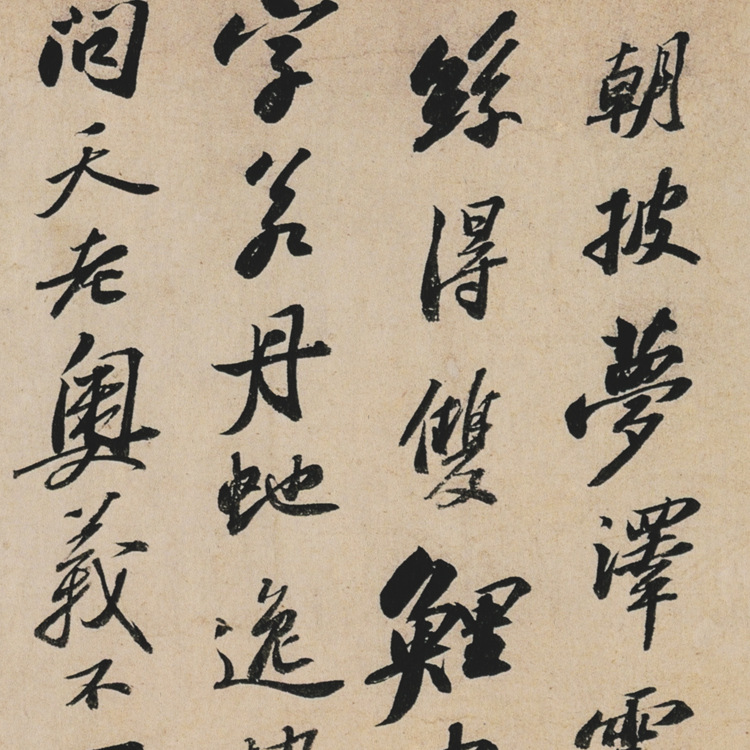 朝披夢澤
絲得雙鯉
字若丹虵逸
問天老奧義不